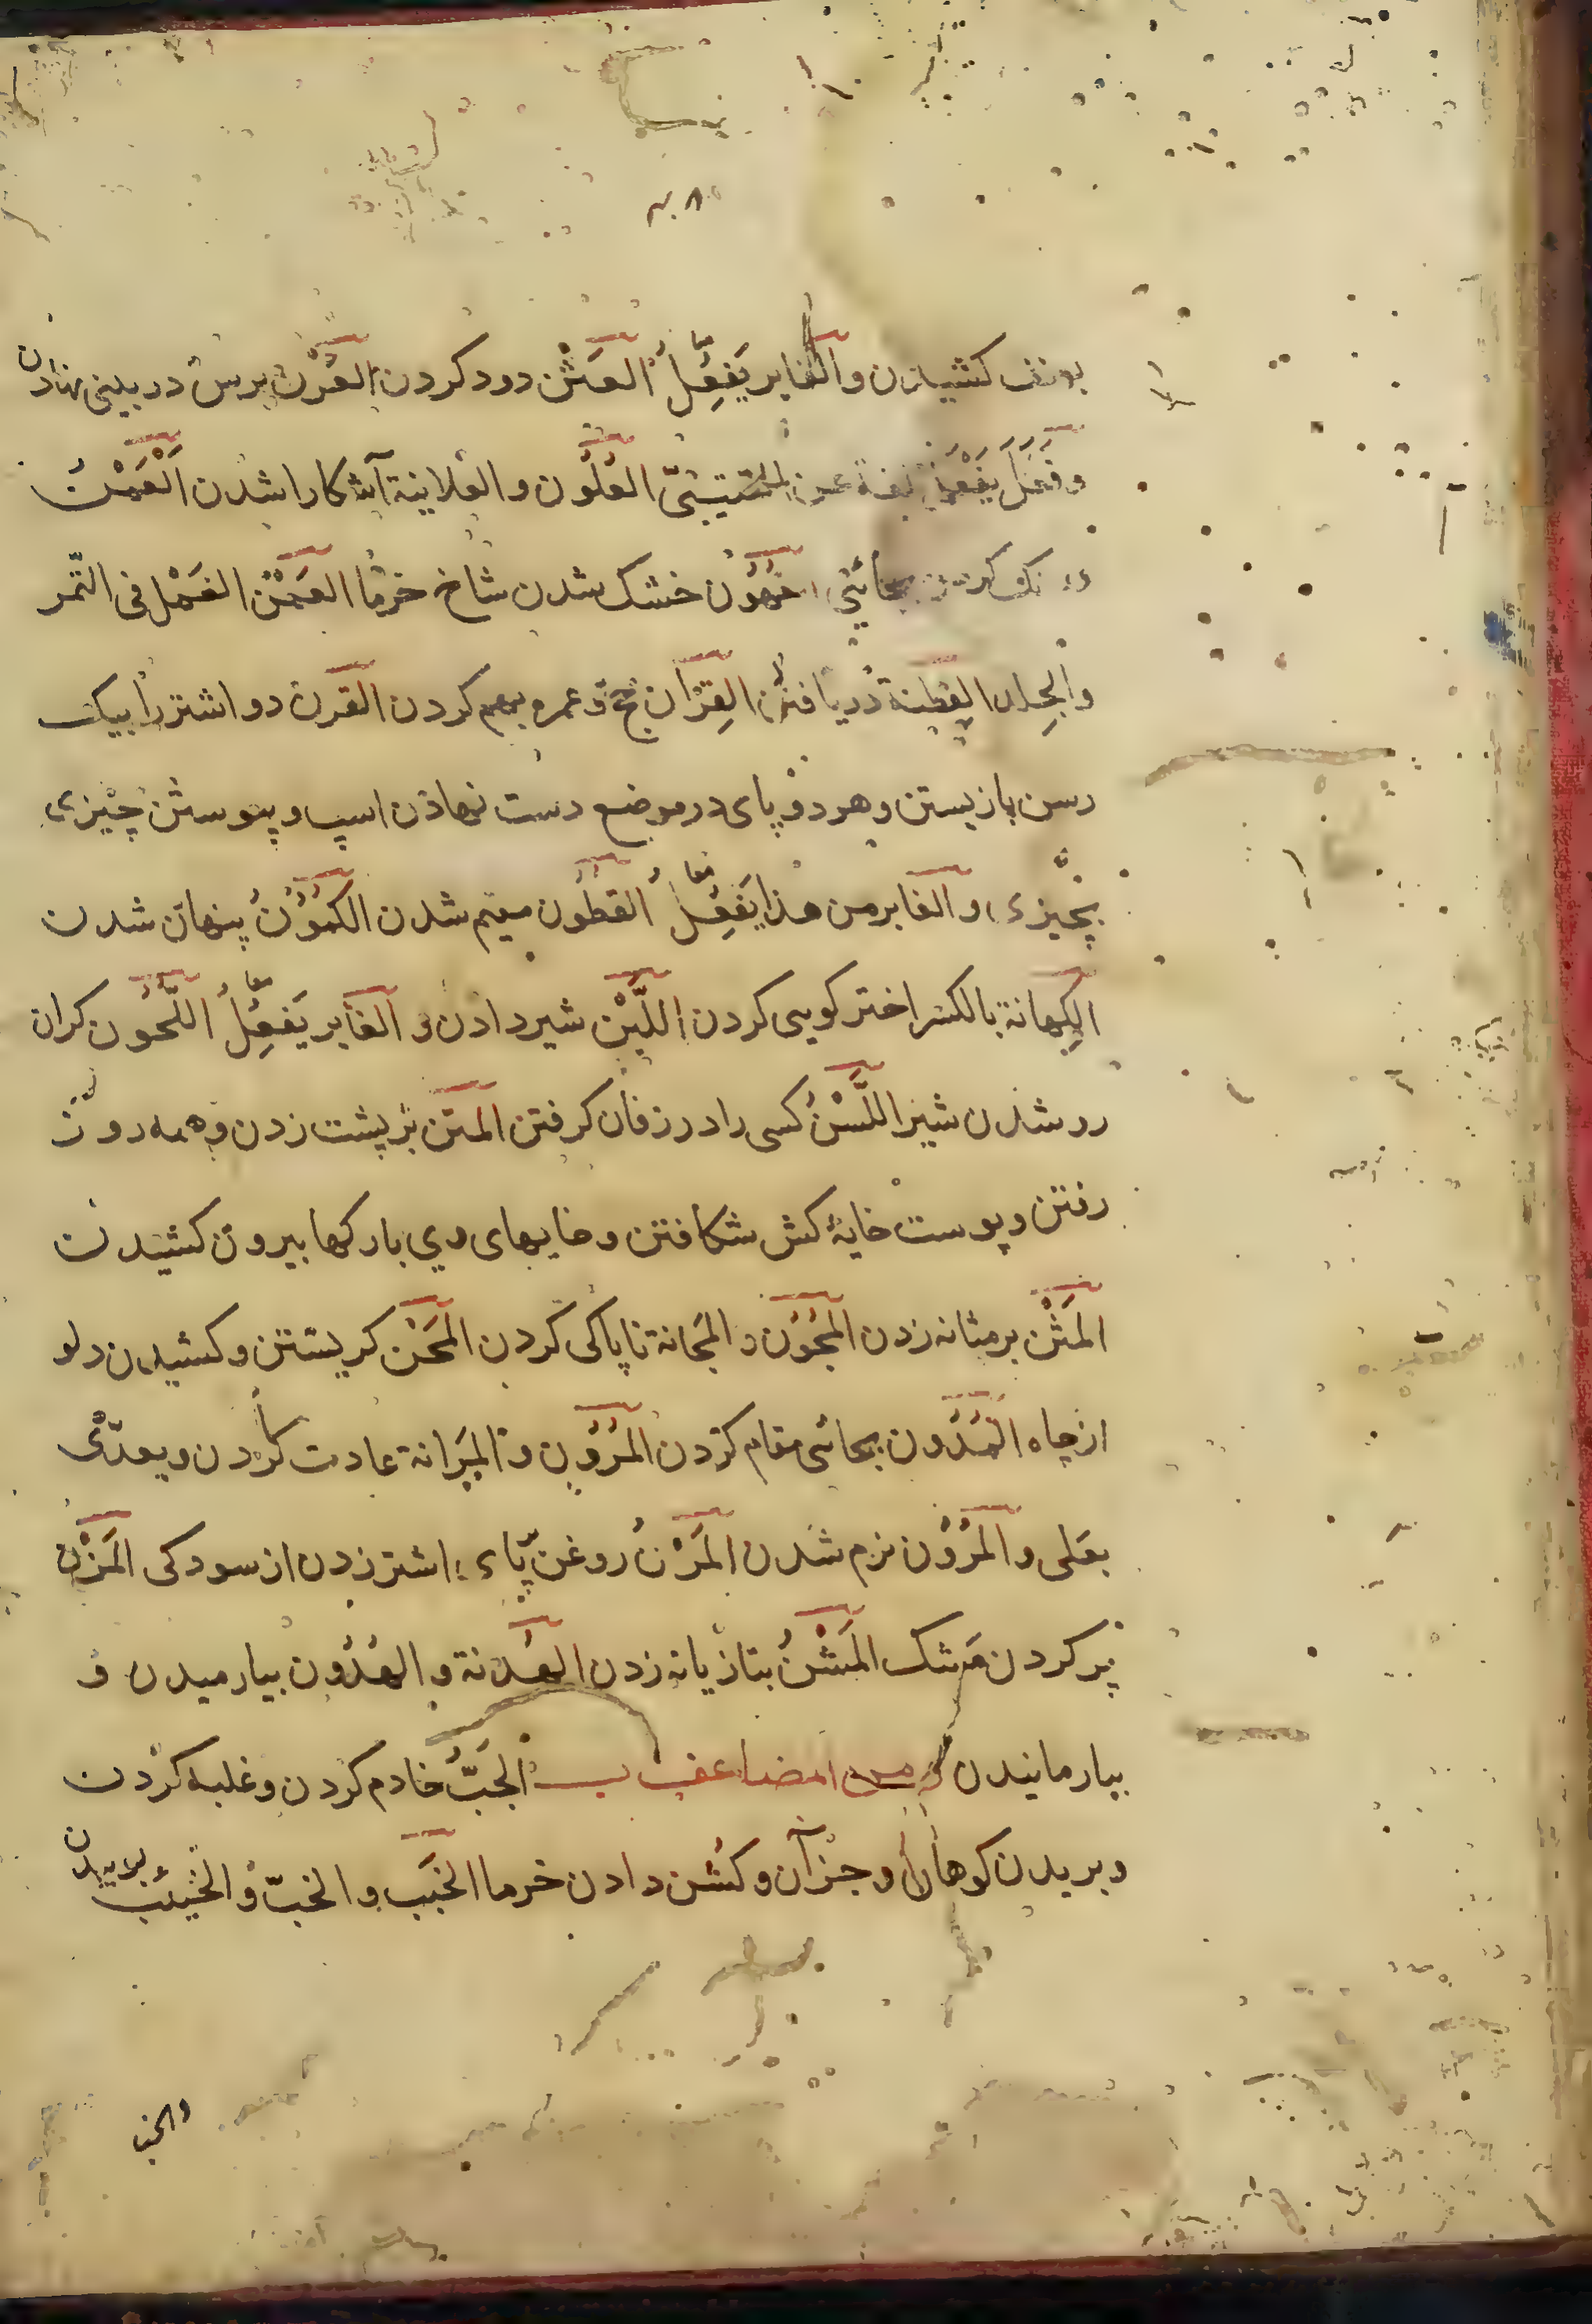 بعنف کشیدن والغابر یَفعِلُ العَثْن دود کردن العَرْن برس در بینی نهادن
وفَعَلَ یَفْعَلُ لغة عن القتیبیّ العُلُون والعَلانیة آشکارا شدن العَمْنُ
بجائی العُهُوْن خشک شدن شاخ خرما الغَمْن الغَمْل فی التّمر
والجِلد الفِطنة دریافتن القِرَان حجّ و عمره بهم کردن القَرنُ دو اشتر را بیک
رسن باز بستن و هر دو پای در موضع دست نهاذن اسپ و پیوستن چیزی
بچیزی والغابر من هذا یَفعِلُ القُطُون مقیم شدن الکُمُوْنُ پنهان شدن
الکِهانة بالکسر اختر کویی کردن اللَّبْن شیر دادن والغابر یَفعِلُ اللُّحُون کران
رو شدن شیر اللَّسْنُ کسی را در زفان کرفتن المَتن بر پشت زدن و همه روز
رفتن و پوست خایهٔ کش شکافتن و خایهای وی بارکها بیرون کشیدن
المَثْن بر مثانه زدن المُجُوْن والمَجانة ناپاکی کردن المَحْن کریستن و کشیدن دلو
از چاه المُدُون بجائی مقام کردن المُرُوْن والمَرَانة عادت کردن ویعدّی
بعَلی والمُرُوْن نرم شدن المَرْنُ روغن پای اشتر زدن از سودکی المَزْن
پر کردن مشک المَشْنُ بتازیانه زدن الهُدنة والهُدُون بیارمیدن و
بیارمانیدن ومن المضاعف ب الجَبُّ خادم کردن و غلبه کردن
و بریدن کوهان وجز آن و کشن دادن خرما الخَبَب والخبّ والخَبیْب پوییدن
والخبـ